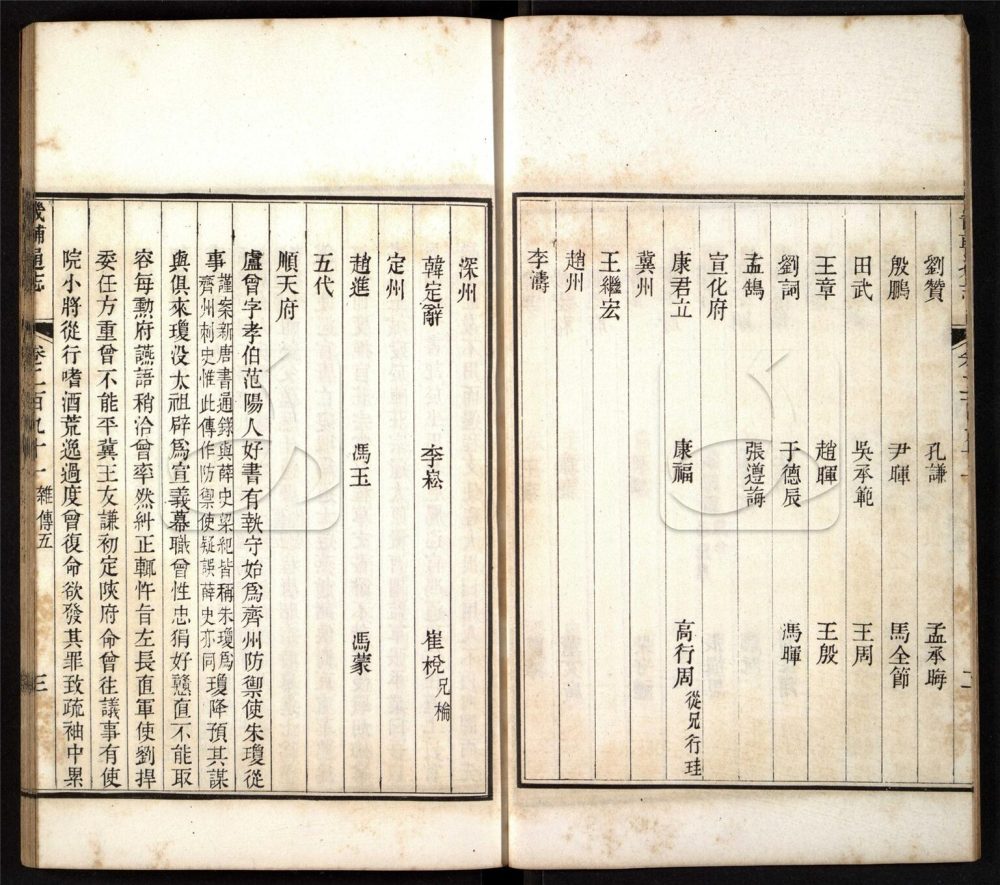 劉贊 孔謙 孟承誨
殷鵬 尹暉 馬全節
田武 吳承範 王周
王章 趙暉 王殷
劉詞 于德辰 馮暉
孟鵠 張遵誨
宣化府
康君立 康福 高行周從兄行珪
冀州
王繼宏
趙州
李濤
深州
韓定辭 李崧 崔梲兄棆
定州
趙進 馮玉 馮蒙
五代
順天府
盧曾字孝伯范陽人好書有執守始爲齊州防禦使朱瓊從
事謹案新唐書通錄與薛史梁紀皆稱朱瓊爲齊州刺史惟此傳作防禦使疑誤薛史亦同瓊降預其謀
與俱來瓊没太祖辟爲宣義幕職曾性忠狷好戇直不能取
容每勳府讌語稍洽曾率然糾正輒忤旨左長直軍使劉捍
委任方重曾不能平冀王友謙初定陝府命曾往議事有使
院小將從行嗜酒荒逸過度曾復命欲發其罪致疏袖中累
畿輔通志 卷二百九十一 雜傳五 三